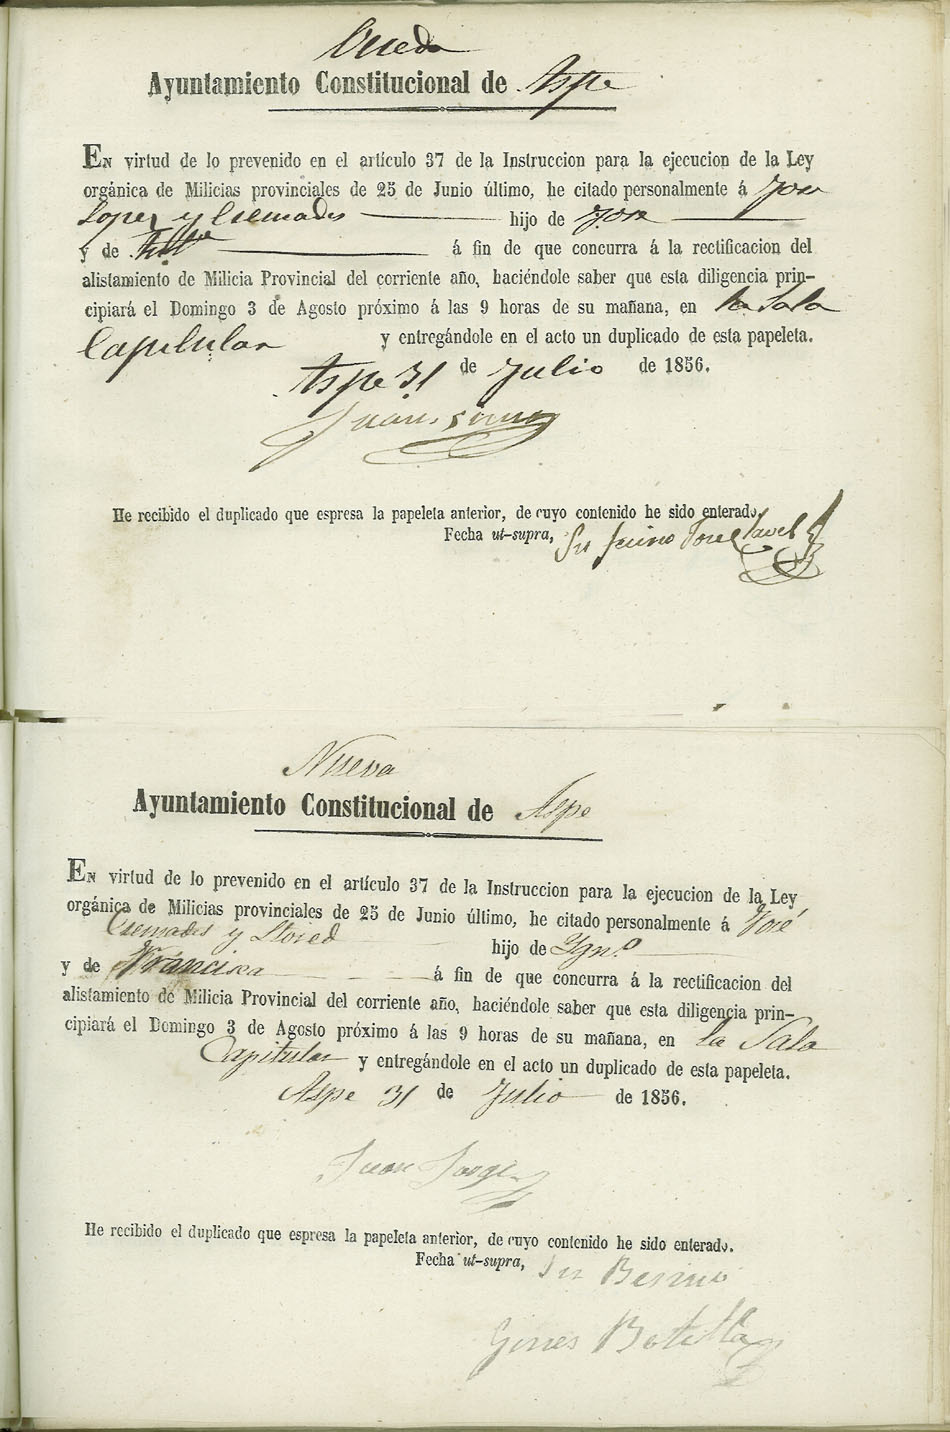 Ayuntamiento Constitucional de Aspe
EN virtud de lo prevenido en el artículo 37 de la Instruccion para la ejecucion de la Ley
orgánica de Milicias provinciales de 25 de Junio último, he citado personalmente á Jose
Lopez y Cremades hijo de Jose
y de á fin de que concurra á la rectificacion del
alistamiento de Milicia Provincial del corriente año, haciéndole saber que esta diligencia prin-
cipiará el Domingo 3 de Agosto próximo á las 9 horas de su mañana, en la Sala
Capitular y entregándole en el acto un duplicado de esta papeleta.
Aspe 31 de Julio de 1856.
Juan
He recibido el duplicado que espresa la papeleta anterior, de cuyo contenido he sido enterado.
Fecha ut-supra,
Nueva
Ayuntamiento Constitucional de Aspe
EN virtud de lo prevenido en el artículo 37 de la Instruccion para la ejecucion de la Ley
orgánica de Milicias provinciales de 25 de Junio último, he citado personalmente á José
Cremades y hijo de Ygn.º
y de Francisca á fin de que concurra á la rectificacion del
alistamiento de Milicia Provincial del corriente año, haciéndole saber que esta diligencia prin-
cipiará el Domingo 3 de Agosto próximo á las 9 horas de su mañana, en la Sala
Capitular y entregándole en el acto un duplicado de esta papeleta.
Aspe 31 de Julio de 1856.
Juan Jorge
He recibido el duplicado que espresa la papeleta anterior, de cuyo contenido he sido enterado.
Fecha ut-supra, Su Besino
Gines Botella